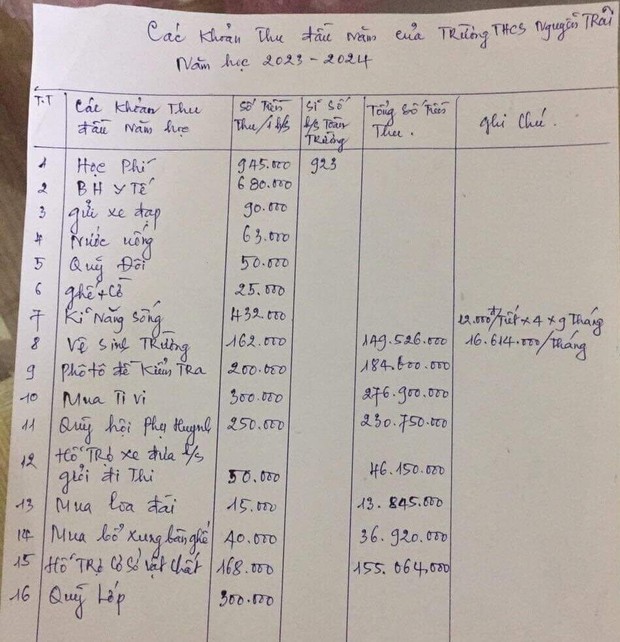 Các khoản thu đầu năm của Trường THCS Nguyễn Trãi
Năm học 2023-2024
T.T Các khoản Thu đầu năm học Số Tiền Thu/1 h/s Sĩ Số h/s Toàn Trường Tổng Số Tiền Thu. Ghi chú.
1 Học Phí 945.000 923
2 BH Y TẾ 680.000
3 gửi xe đạp 90.000
4 Nước uống 63.000
5 Quỹ Đội 50.000
6 ghế + cờ 25.000
7 Kĩ Năng Sống 432.000 12.000đ/Tiết x 4 x 9 Tháng
8 Vệ Sinh Trường 162.000 149.526.000 16.614.000/Tháng
9 Phô tô đề Kiểm Tra 200.000 184.600.000
10 Mua Ti vi 300.000 276.900.000
11 Quỹ hội Phụ Huynh 250.000 230.750.000
12 Hỗ Trợ xe đưa h/s giỏi đi Thi 50.000 46.150.000
13 Mua loa đài 15.000 13.845.000
14 Mua bổ xung bàn ghế 40.000 36.920.000
15 Hỗ Trợ Cơ Sở vật chất 168.000 155.064.000
16 Quỹ Lớp 300.000